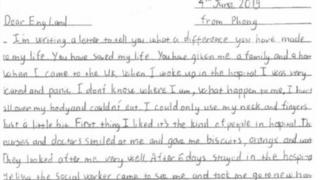 4th June 2019
Dear England
from Phong
I'm writing a letter to tell you what a difference you have made
to my life. You have saved my life. You have given me a family and a
when I came to the UK. When I woke up in the hospital I was very
scared and panic. I dont know where I am, what happen to me, I hurt
all over my body and couldn't eat. I could only use my neck and fingers
just a little bit. First thing I liked it's the kind of people in hospital. The
nurses and doctors smiled at me and gave me biscuits, orange and
They looked after me very well. After 6 days stayed in the hospital
the social worker came to see me and took me to new